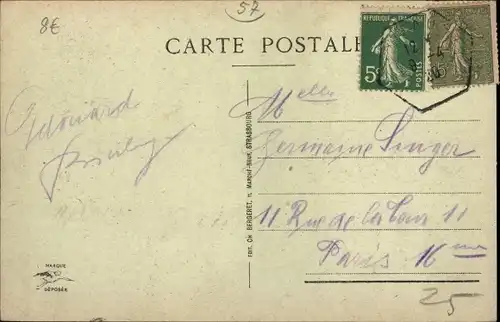 8€
57
CARTE POSTALE
RÉPUBLIQUE FRANÇAISE
5c
POSTES
Edouard
Melle
Germaine Singer
11 Rue de la Tour 11
Paris 16me
Edit. CH. BERGERET, STRASBOURG
MARQUE
DÉPOSÉE
25